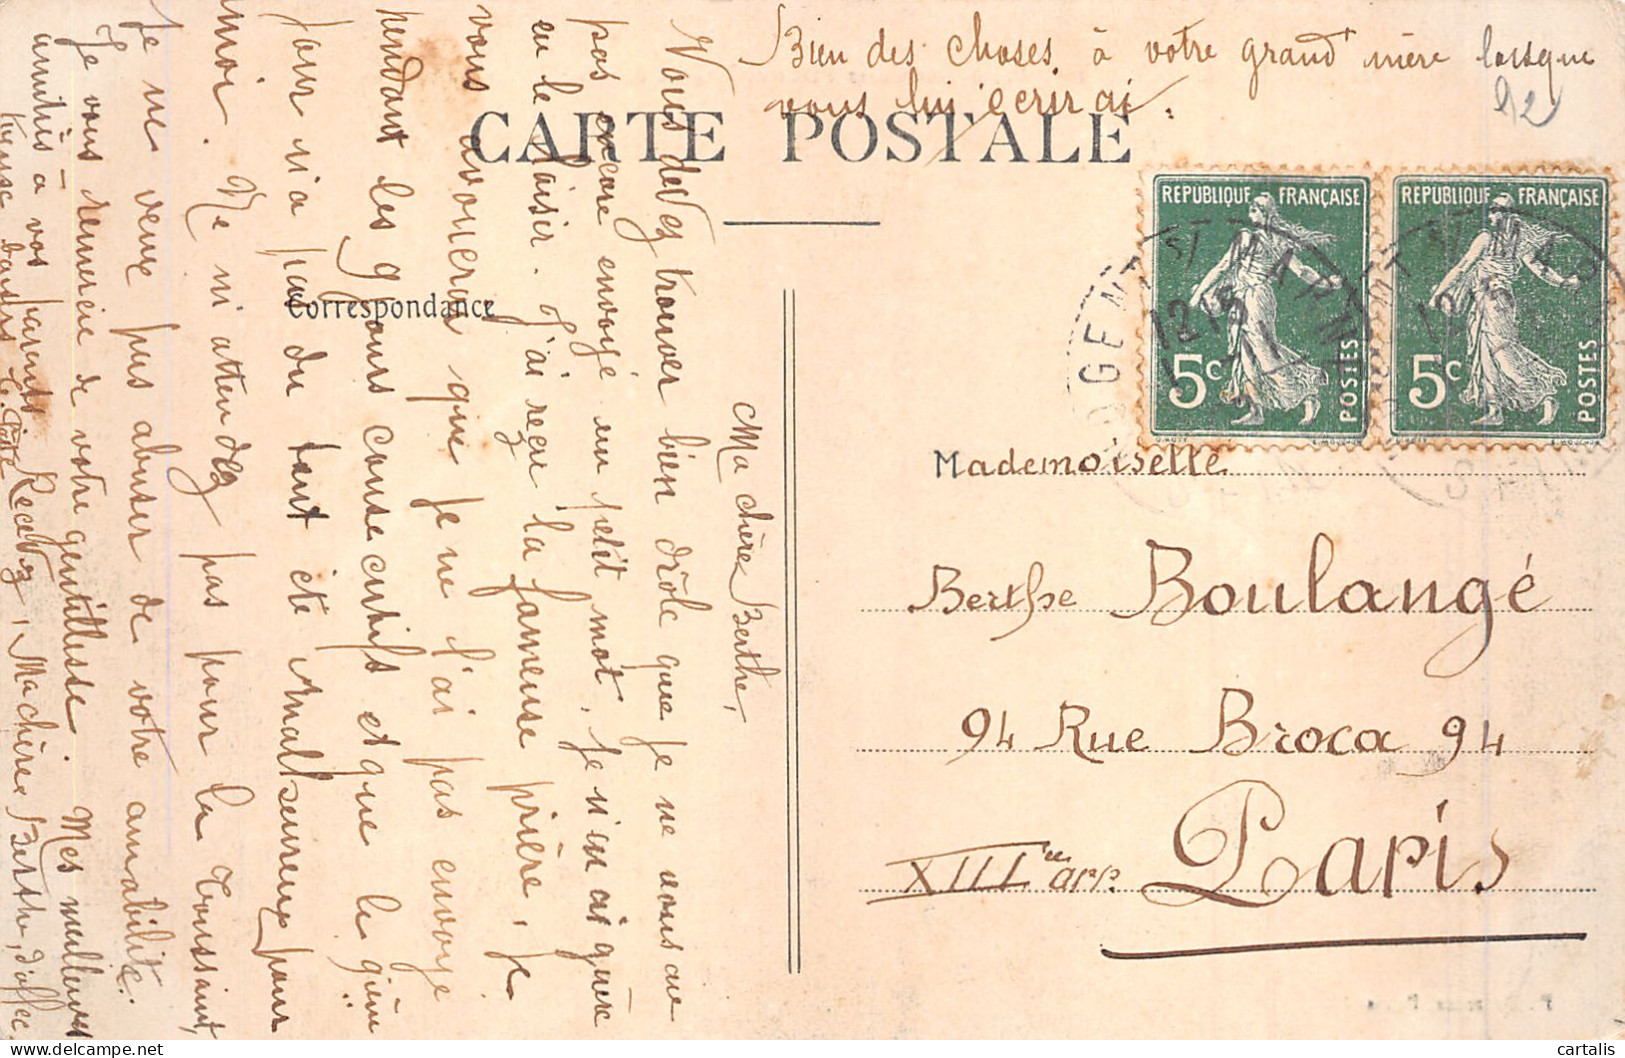 Bien des choses à votre grand' mère lorsque
vous lui ecrirai.
92
CARTE POSTALE
Correspondance
REPUBLIQUE FRANÇAISE
5c
POSTES
REPUBLIQUE FRANÇAISE
5c
POSTES
OGENT S/ MARNE
12 15
Mademoiselle
Berthe Boulangé
94 Rue Broca 94
XIIIe arr. Paris
Ma chère Berthe,
Vous devez trouver bien drôle que je ne vous aie
pas encore envoyé un petit mot, je n'en ai guère
eu le loisir. J'ai reçu la fameuse prière, je
vous avouerai que je ne l'ai pas envoyé
pendant les 9 jours consecutifs et que le 9ième
jour n'a pas du tout été malheureux pour
moi. Ne m'attendez pas pour la Toussaint,
je ne veux pas abuser de votre amabilité.
Je vous remercie de votre gentillesse. Mes meilleures
amitiés à vos parents. Recevez, Ma chère Berthe, d'affec
tueuse baisers
cartalis